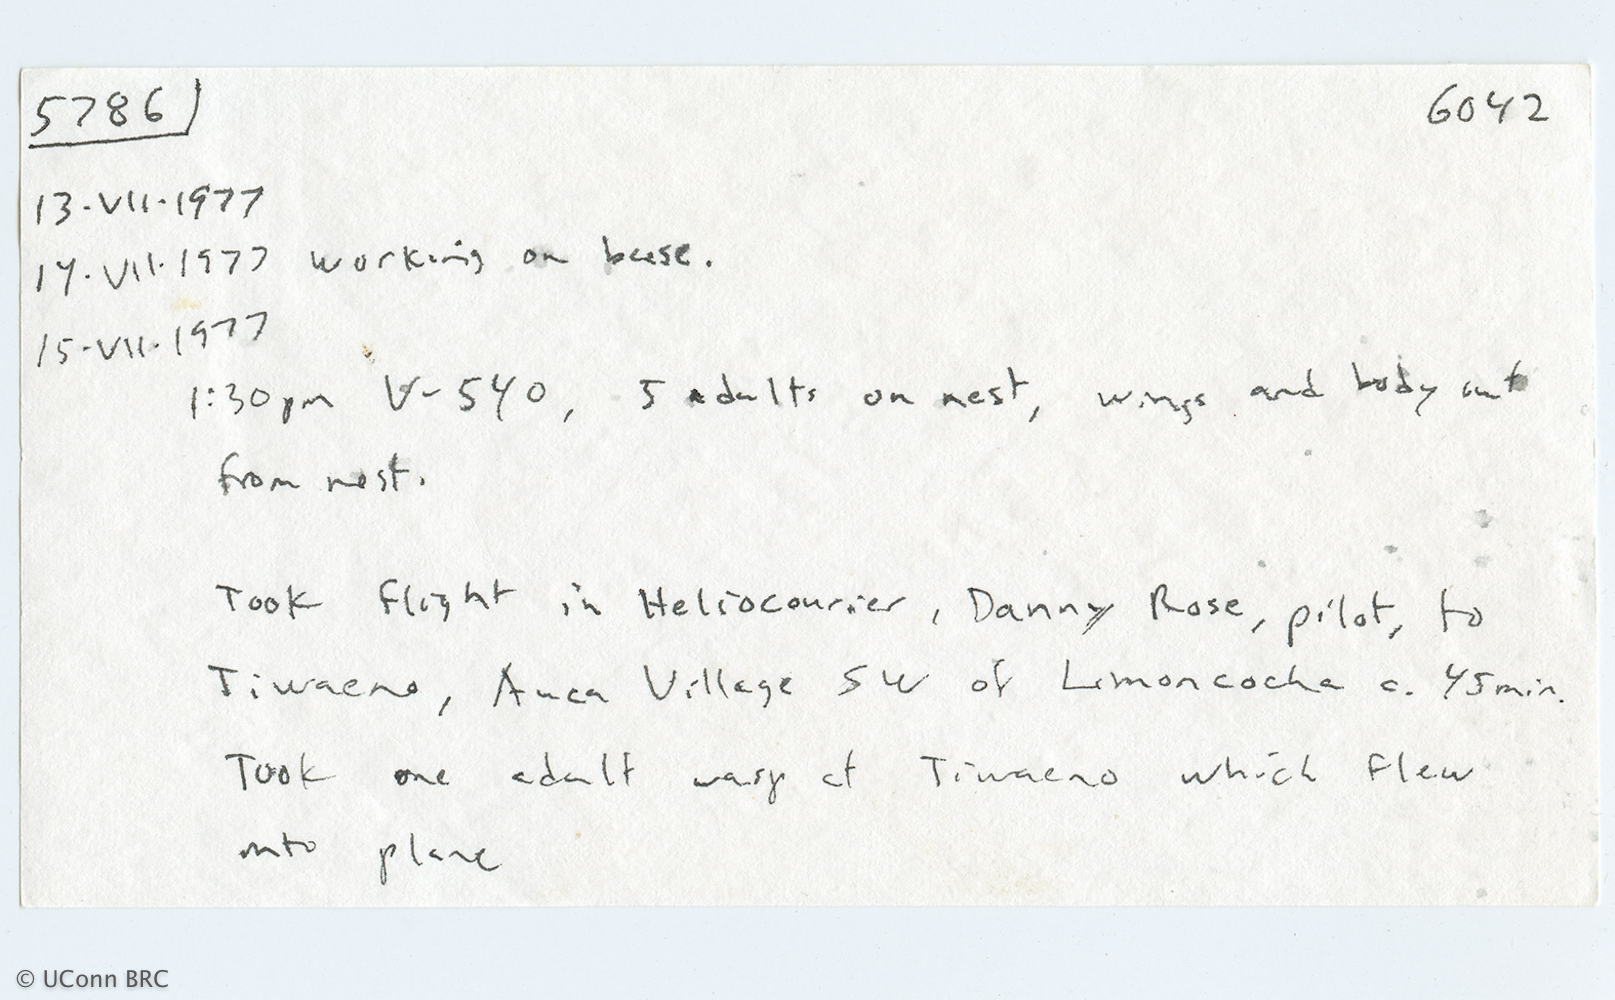 5786 6042
13.VII.1977
14.VII.1977 working on base.
15.VII.1977
1:30pm V-540, 5 adults on nest, wings and body out
from nest.
Took flight in Heliocourier, Danny Rose, pilot, to
Tiwaeno, Auca Village SW of Limoncocha c. 45min.
Took one adult wasp at Tiwaeno which flew
into plane
© UConn BRC